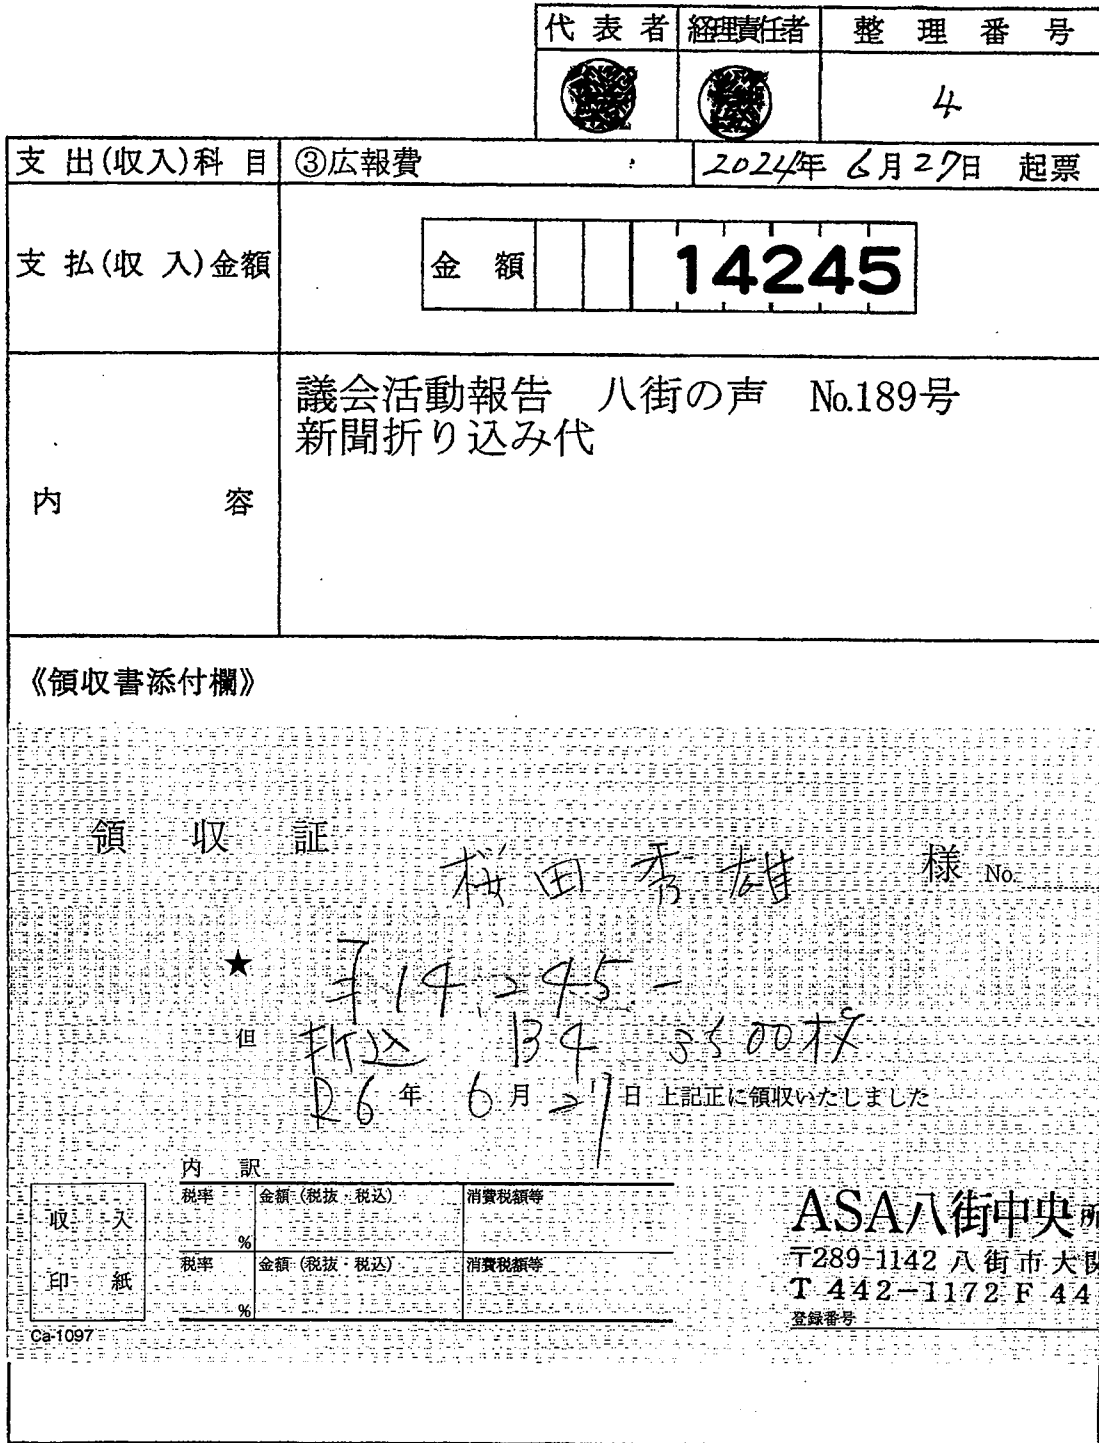 代表者 経理責任者 整理番号
4
支出(収入)科目 ③広報費 2024年 6月27日 起票
支払(収入)金額 金額 14245
議会活動報告 八街の声 No.189号
新聞折り込み代
内容
《領収書添付欄》
領収証
桜田秀雄 様 No.
★ ¥14,245-
但 折込 B4 3500枚
R6年 6月27日 上記正に領収いたしました
内訳
税率 % 金額(税抜・税込) 消費税額等
税率 % 金額(税抜・税込) 消費税額等
収入
印紙
Ca-1097
ASA八街中央所
〒289-1142 八街市大関
T 442-1172 F 44
登録番号